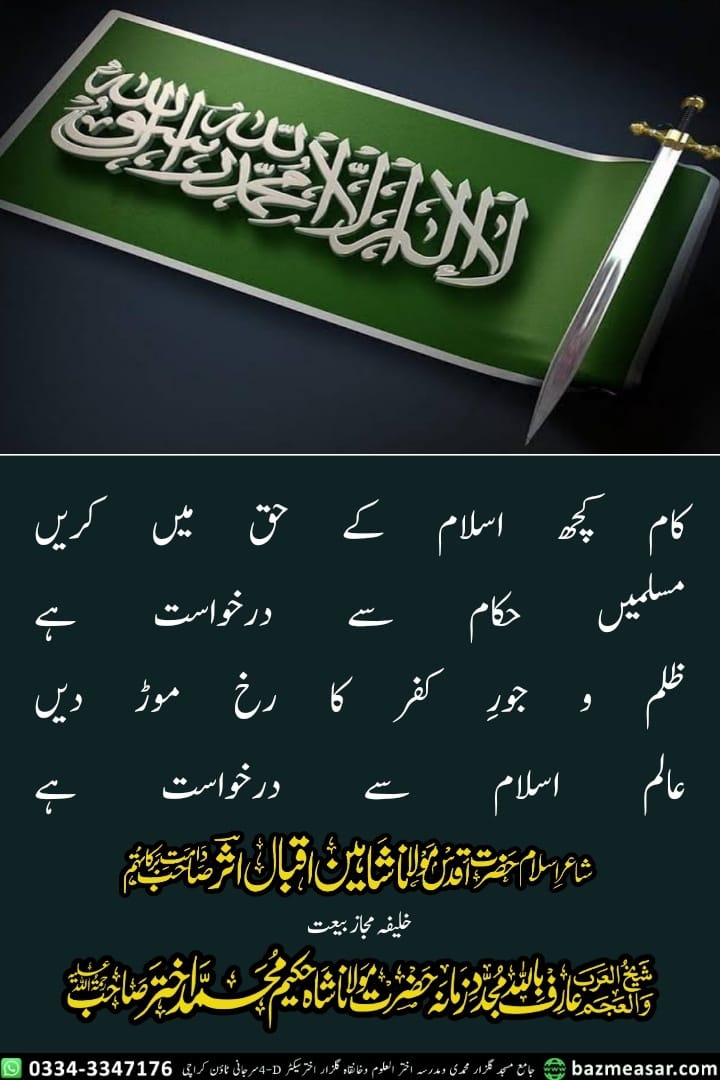 لا إله إلا الله محمد رسول الله
کام کچھ اسلام کے حق میں کریں
مسلمیں حکام سے درخواست ہے
ظلم و جورِ کفر کا رخ موڑ دیں
عالم اسلام سے درخواست ہے
شاعرِ اسلام حضرت اقدس مولانا شاہین اقبال اثر صاحب دامت برکاتہم
خلیفہ مجاز بیعت
شیخ العرب والعجم عارف باللہ مجدد زمانہ حضرت مولانا شاہ حکیم محمد اختر صاحب رحمۃ اللہ علیہ
bazmeasar.com جامع مسجد گلزار محمدی ومدرسہ اختر العلوم وخانقاہ گلزار اختر سیکٹر 4-D سرجانی ٹاؤن کراچی 0334-3347176